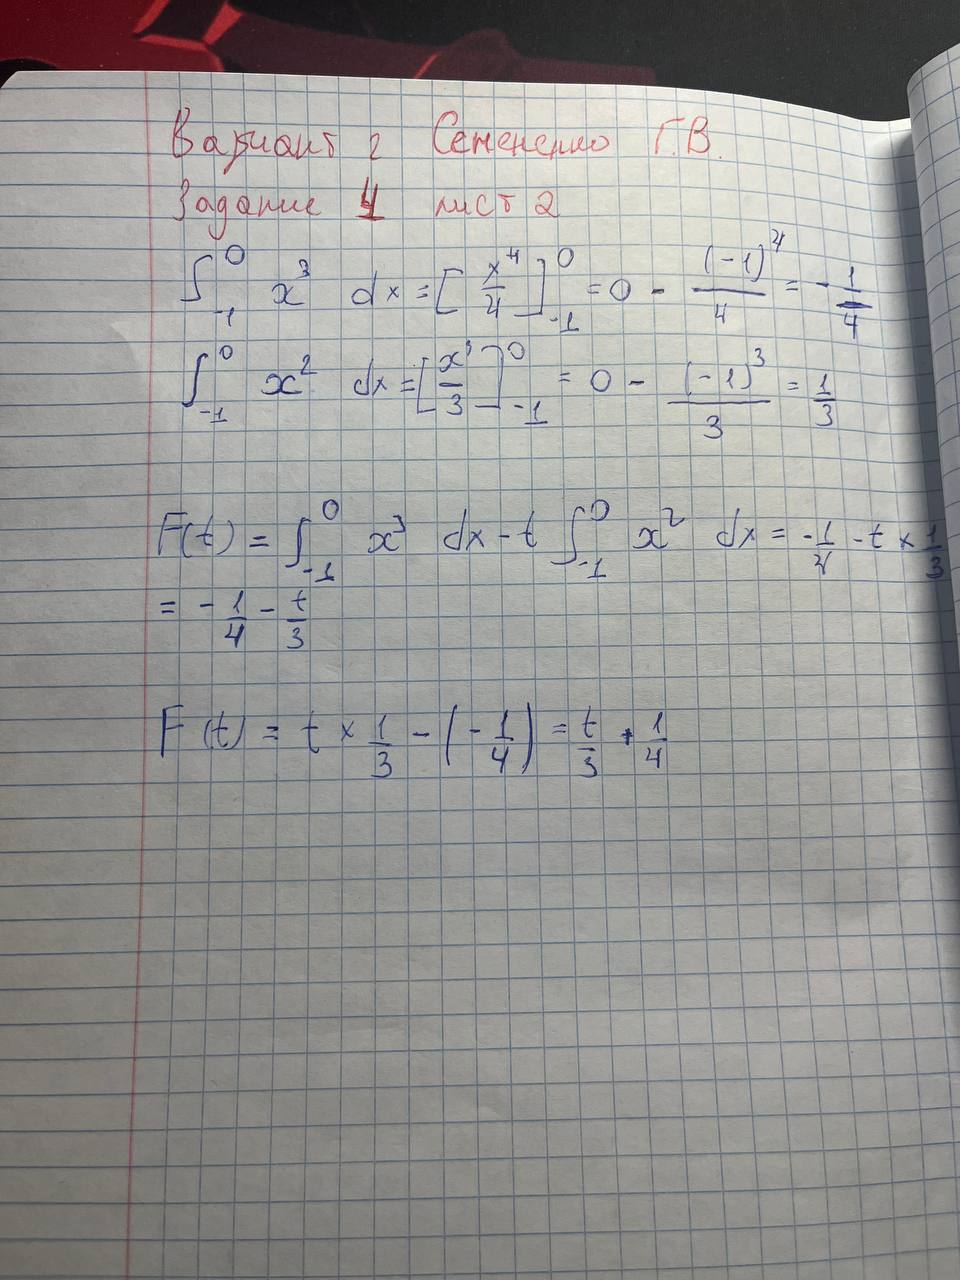 Вариант 2 Семененко Г.В.
Задание 4 лист 2
∫₋₁⁰ x³ dx = [x⁴/4]₋₁⁰ = 0 - (-1)⁴/4 = -1/4
∫₋₁⁰ x² dx = [x³/3]₋₁⁰ = 0 - (-1)³/3 = 1/3
F(t) = ∫₋₁⁰ x³ dx - t ∫₋₁⁰ x² dx = -1/4 - t × 1/3
= -1/4 - t/3
F(t) = t × 1/3 - (-1/4) = t/3 + 1/4